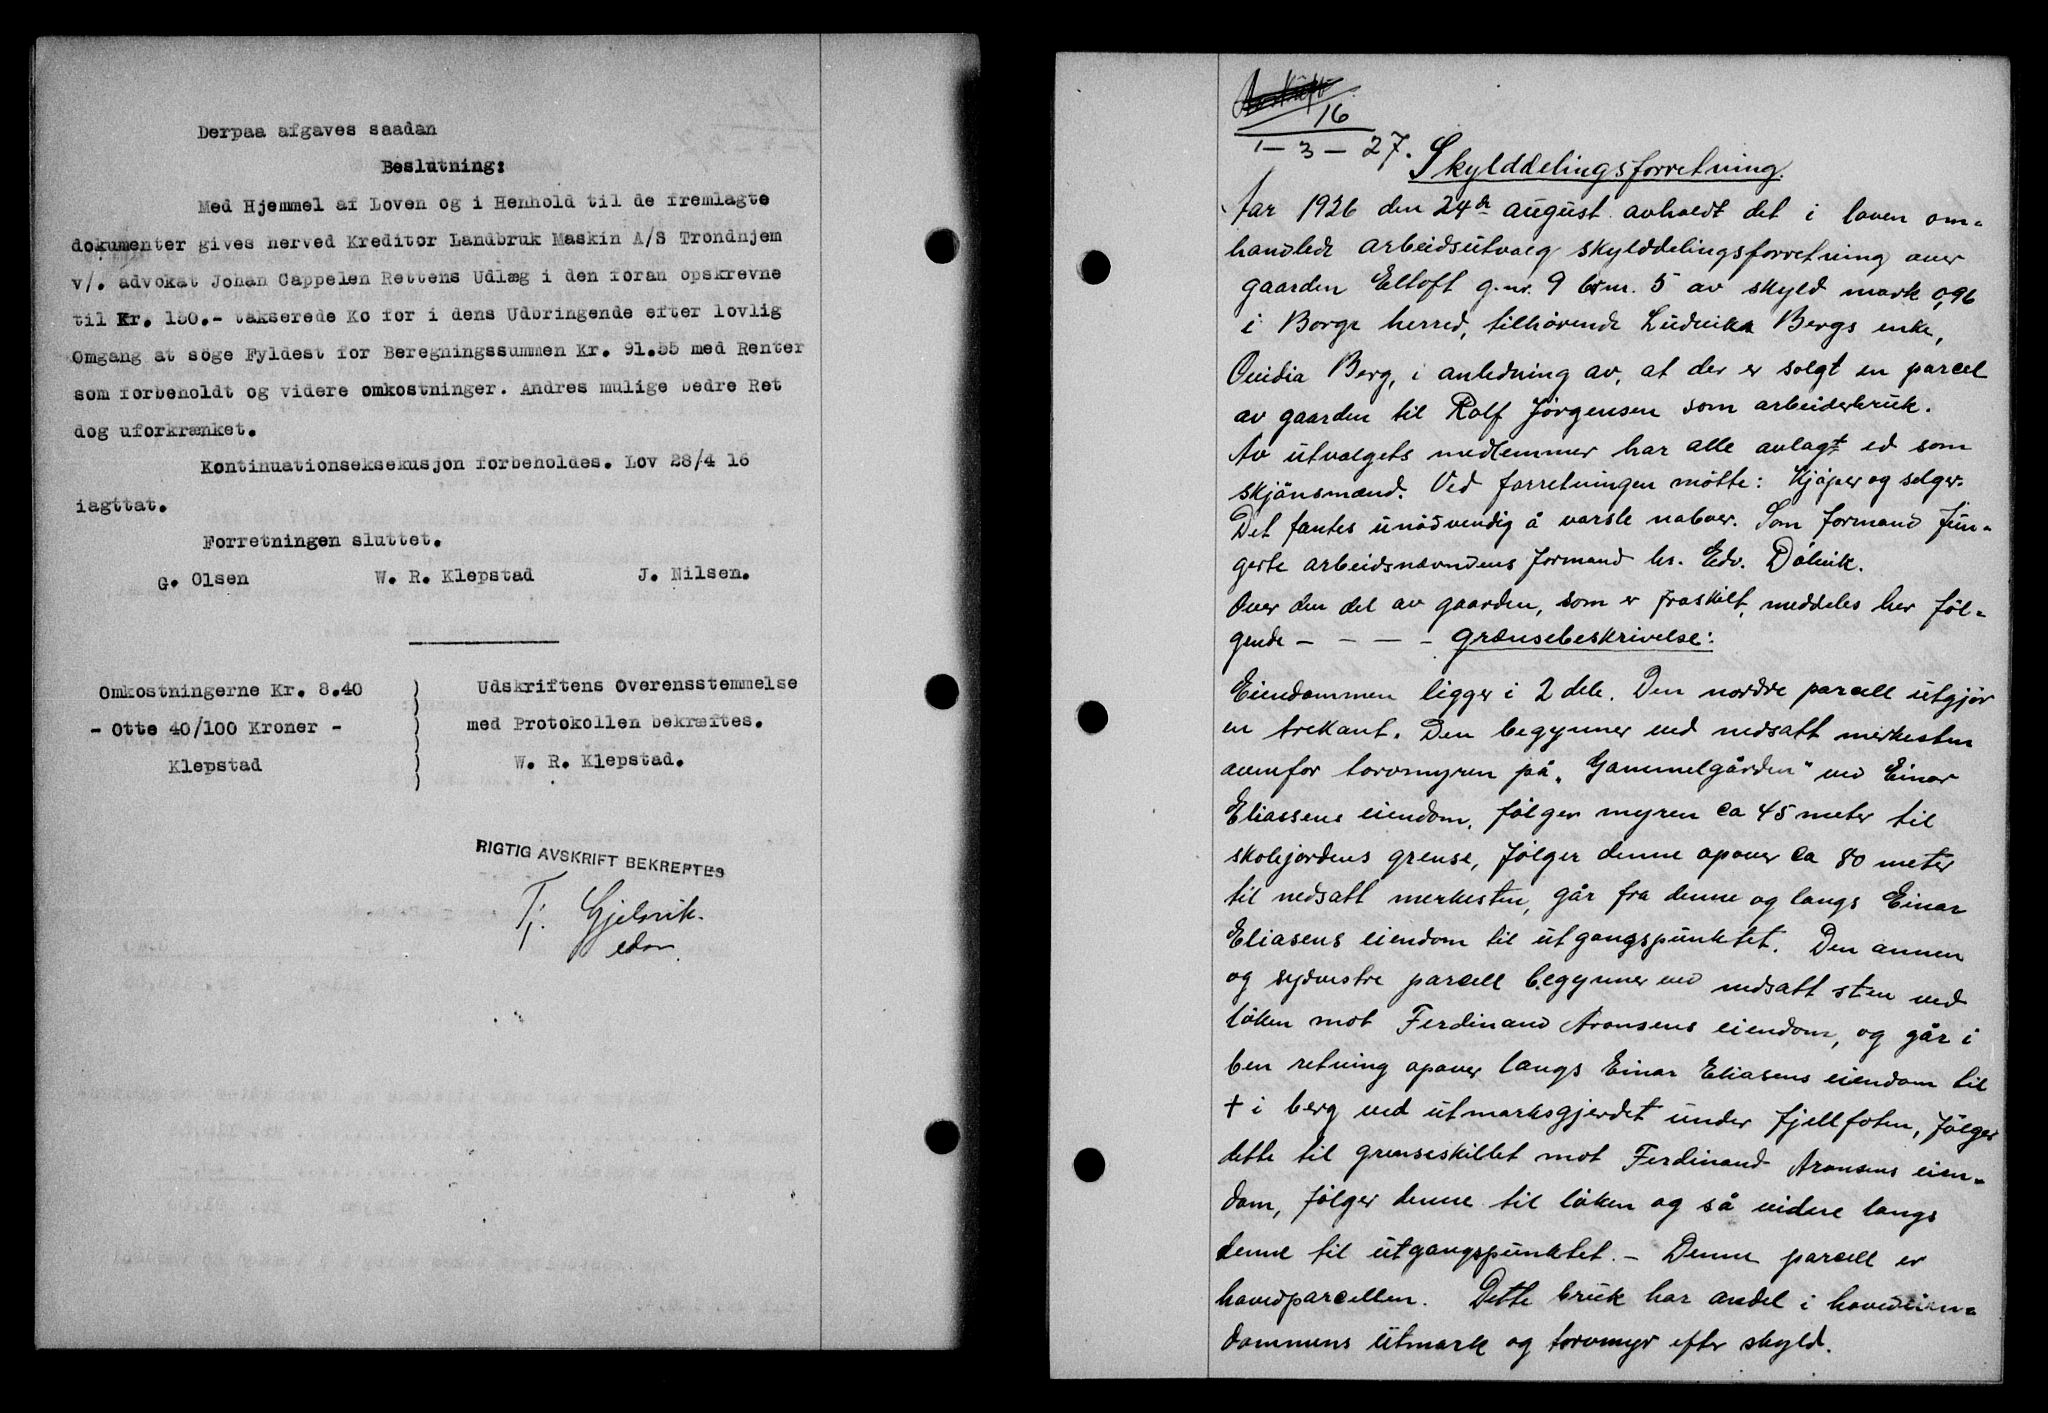 Derpaa afgaves saadan
Beslutning:
Med Hjemmel af Loven og i Henhold til de fremlagte
dokumenter gives herved Kreditor Landbruk Maskin A/S Trondhjem
v/. advokat Johan Cappelen Rettens Udlæg i den foran opskrevne
til Kr. 150.- takserede Ko for i dens Udbringende efter lovlig
Omgang at söge Fyldest for Beregningssummen Kr. 91.55 med Renter
som forbeholdt og videre omkostninger. Andres mulige bedre Ret
dog uforkrænket.
Kontinuationseksekusjon forbeholdes. Lov 28/4 16
iagttat.
Forretningen sluttet.
G. Olsen W. R. Klepstad J. Nilsen.
Omkostningerne Kr. 8.40
- Otte 40/100 Kroner -
Klepstad
Udskriftens Overensstemmelse
med Protokollen bekræftes.
W. R. Klepstad.
RIGTIG AVSKRIFT BEKREFTES
T. Gjelsvik.
edsv.
16
1-3-27.
Skylddelingsforretning.
Aar 1926 den 24de august avholdt det i loven om-
handlede arbeidsutvalg skylddelingsforretning over
gaarden Eltoft g.nr. 9 br.nr. 5 av skyld mark 0,96
i Borge herred, tilhørende Ludviks Bergs enke,
Ovidia Berg, i anledning av, at der er solgt en parcel
av gaarden til Rolf Jørgensen som arbeiderbruk.
Av utvalgets medlemmer har alle avlagt ed som
skjönsmænd. Ved forretningen møtte: Kjøper og selger.
Det fantes unödvendig å varsle naboer. Som formand fun-
gerte arbeidsnævndens formand hr. Edv. Dölvik.
Over den del av gaarden, som er fraskilt, meddeles her føl-
gende - - - - grænsebeskrivelse:
Eiendommen ligger i 2 dele. Den nordre parcell utgjør
en trekant. Den begynner ved nedsatt merkesten
ovenfor torvmyren på „Gammelgården" ved Einar
Eliassens eiendom, følger myren ca 45 meter til
skolejordens grense, følger denne opover ca 80 meter
til nedsatt merkesten, går fra denne og langs Einar
Eliasens eiendom til utgangspunktet. Den annen
og sydvestre parcell begynner ved nedsatt sten ved
løken mot Ferdinand Aronsens eiendom, og går i
ben retning opover langs Einar Eliasens eiendom til
+ i berg ved utmarksgjerdet under fjellfoten, følger
dette til grenseskillet mot Ferdinand Aronsens eien-
dom, følger denne til løken og så videre langs
denne til utgangspunktet. - Denne parcell er
hovedparcellen. Dette bruk har andel i hovedeien-
dommens utmark og torvmyr efter skyld.